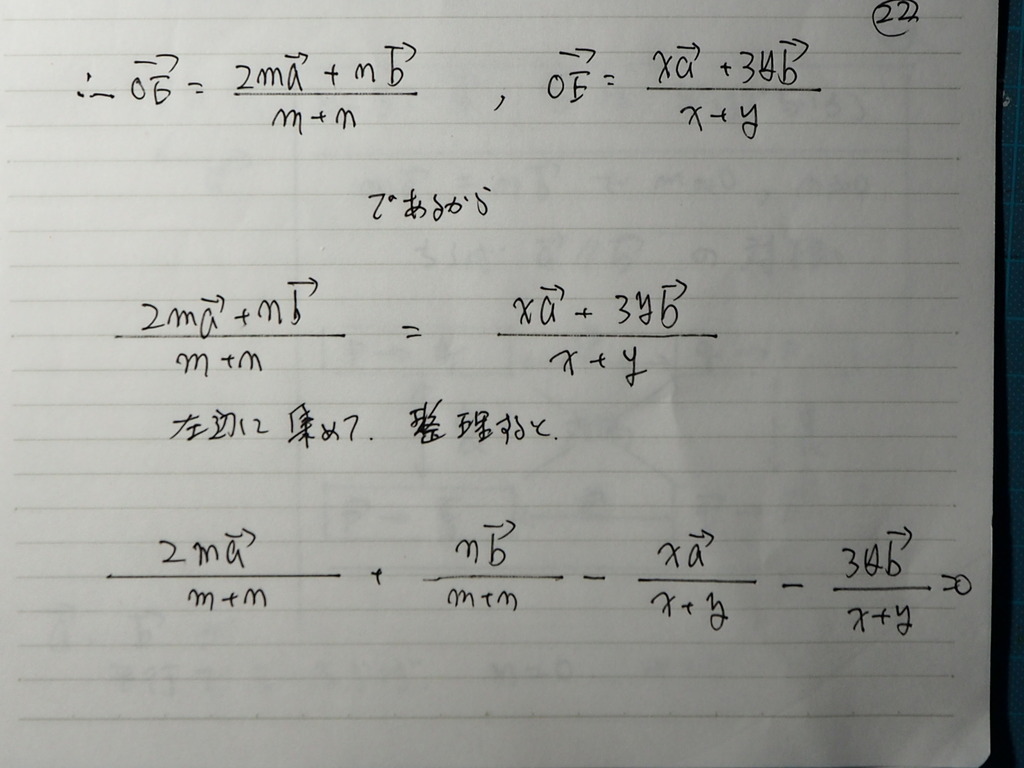 ㉒
∴ \overrightarrow{OE} = \frac{2m\vec{a} + n\vec{b}}{m+n} , \overrightarrow{OE} = \frac{x\vec{a} + 3y\vec{b}}{x+y}
であるから
\frac{2m\vec{a} + n\vec{b}}{m+n} = \frac{x\vec{a} + 3y\vec{b}}{x+y}
左辺に集めて. 整理すると.
\frac{2m\vec{a}}{m+n} + \frac{n\vec{b}}{m+n} - \frac{x\vec{a}}{x+y} - \frac{3y\vec{b}}{x+y} = 0